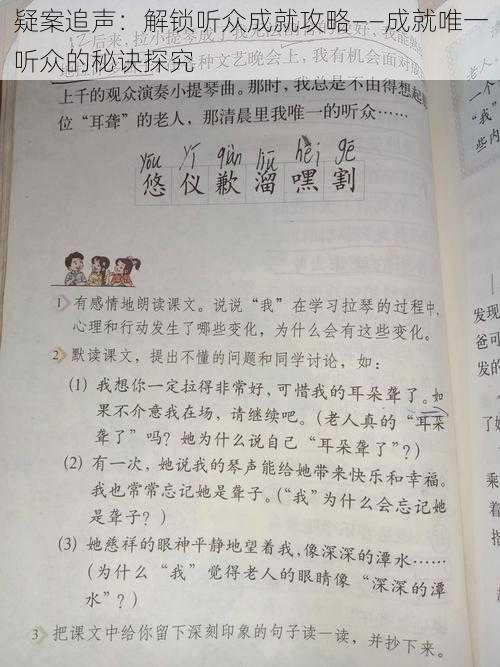 疑案追声：解锁听众成就攻略——成就唯一
听众的秘诀探究
上千的观众演奏小提琴曲。那时，我总是不由得想起
位“耳聋”的老人，那清晨里我唯一的听众……
yōu yí qiàn liū hēi gē
悠 仪 歉 溜 嘿 割
1 有感情地朗读课文。说说“我”在学习拉琴的过程中，
心理和行动发生了哪些变化，为什么会有这些变化。
2 默读课文，提出不懂的问题和同学讨论，如：
（1）我想你一定拉得非常好，可惜我的耳朵聋了。如
果不介意我在场，请继续吧。（老人真的“耳朵
聋了”吗？她为什么说自己“耳朵聋了”？）
（2）有一次，她说我的琴声能给她带来快乐和幸福。
我也常常忘记她是聋子。（“我”为什么会忘记她
是聋子？）
（3）她慈祥的眼神平静地望着我，像深深的潭水……
（为什么“我”觉得老人的眼睛像“深深的潭
水”？）
3 把课文中给你留下深刻印象的句子读一读，并抄下来。
老人，
一个
“我”
些内
发现
爸可
发的
了她
乘
着
指